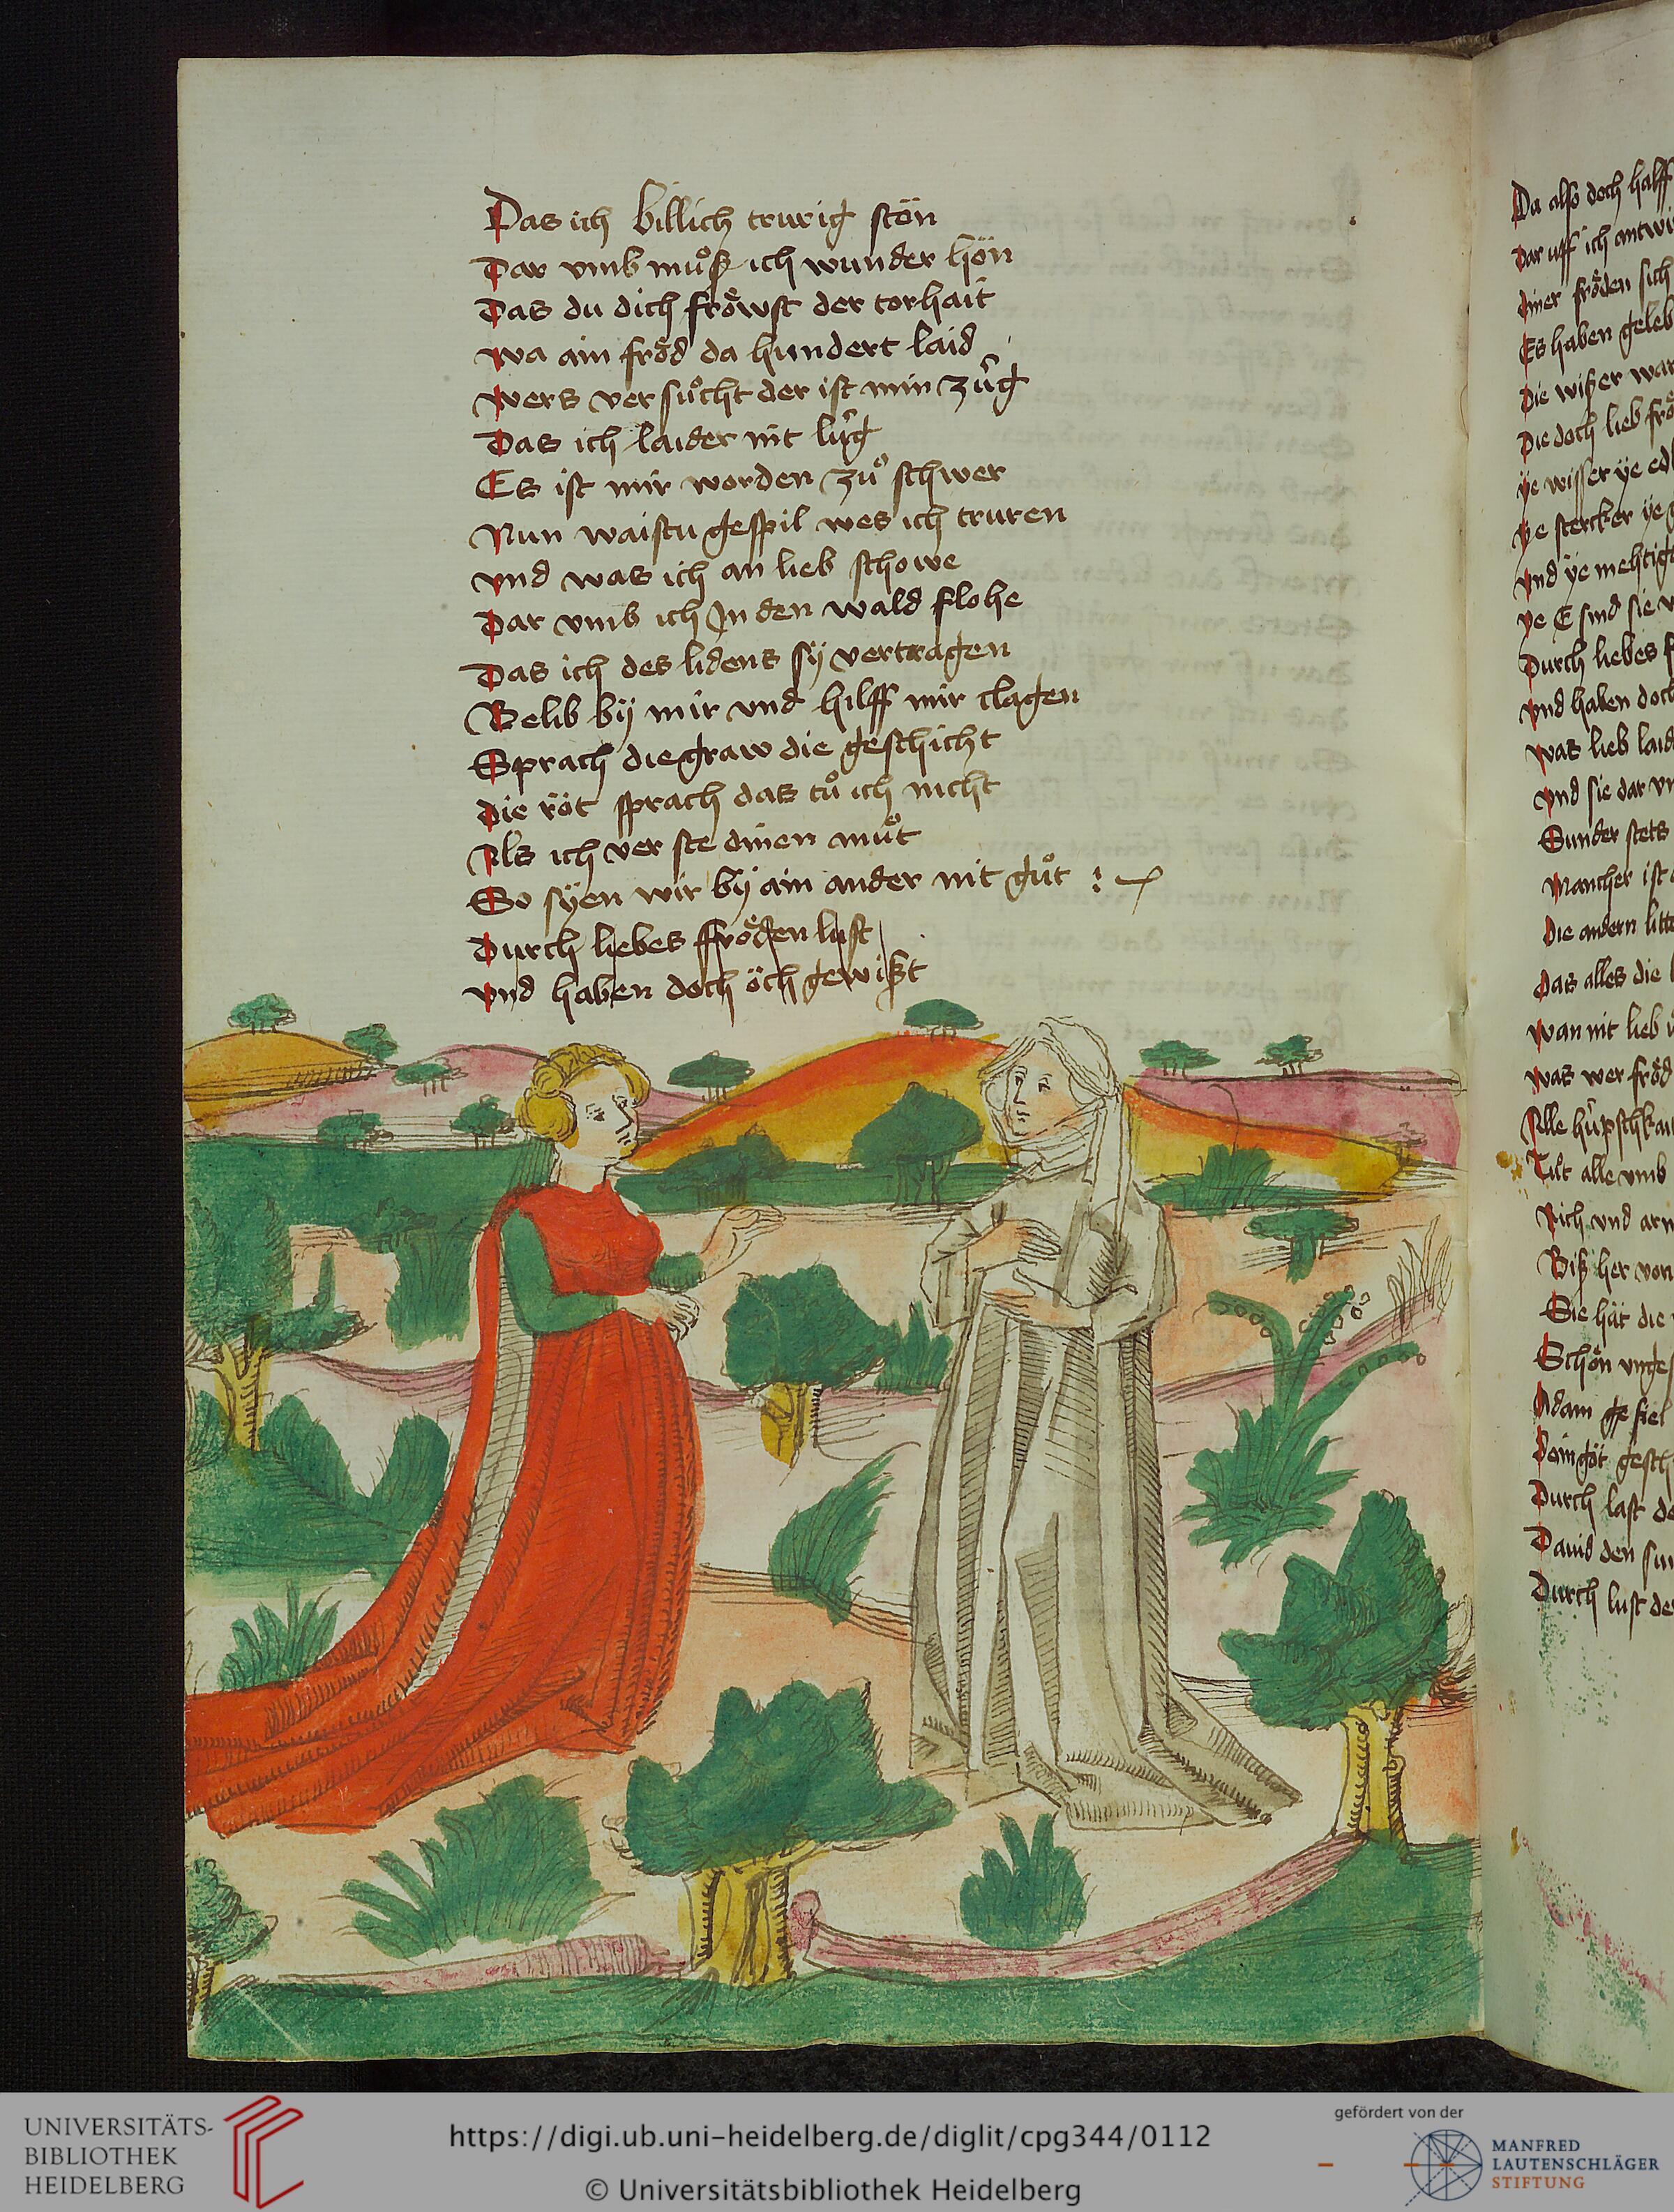 Das ich billich trurig stön
Dar vmb můß ich wunder hön
Das du dich fröwst der torhait
wa ain fröd da hundert laid
wers versůcht der ist min zůg
Das ich laider nit lüg
Es ist mir worden zů schwer
Nun waistu gespil wes ich truren
vnd was ich an lieb schowe
Dar vmb ich In den wald flohe
Das ich des lidens sÿ vertragen
Belib bÿ mir vnd hilff mir clagen
Sprach die graw die geschicht
die röt sprach das tů ich nicht
Als ich ver ste dinen můt
So sÿen wir bÿ ain ander nit gůt :
Durch liebes ffröden lust
vnd haben doch öch gewißt
Da also doch halff
Dar uff ich antw
diner fröden sich
Es haben geleb
Die wißer war
Die doch lieb frö
ÿe wisser ÿe ed
ÿe stercker ÿe
vnd ÿe mehtig
ye E sind sie
Durch liebes f
vnd haben doch
was lieb laid
vnd sie dar vn
Sunder stets
Mancher ist
Die andern litt
Das alles die
wan nit lieb
was wer fröd
Alle hüpschkai
Tůt alle vmb
Rich vnd arm
Biß her von
Sie hät die
Schön vnge
Adam ge fiel
gesch
Durch last de
Dauid den su
Durch lust de
UNIVERSITÄTS-
BIBLIOTHEK
HEIDELBERG
https://digi.ub.uni-heidelberg.de/diglit/cpg344/0112
© Universitätsbibliothek Heidelberg
gefördert von der
MANFRED
LAUTENSCHLÄGER
STIFTUNG